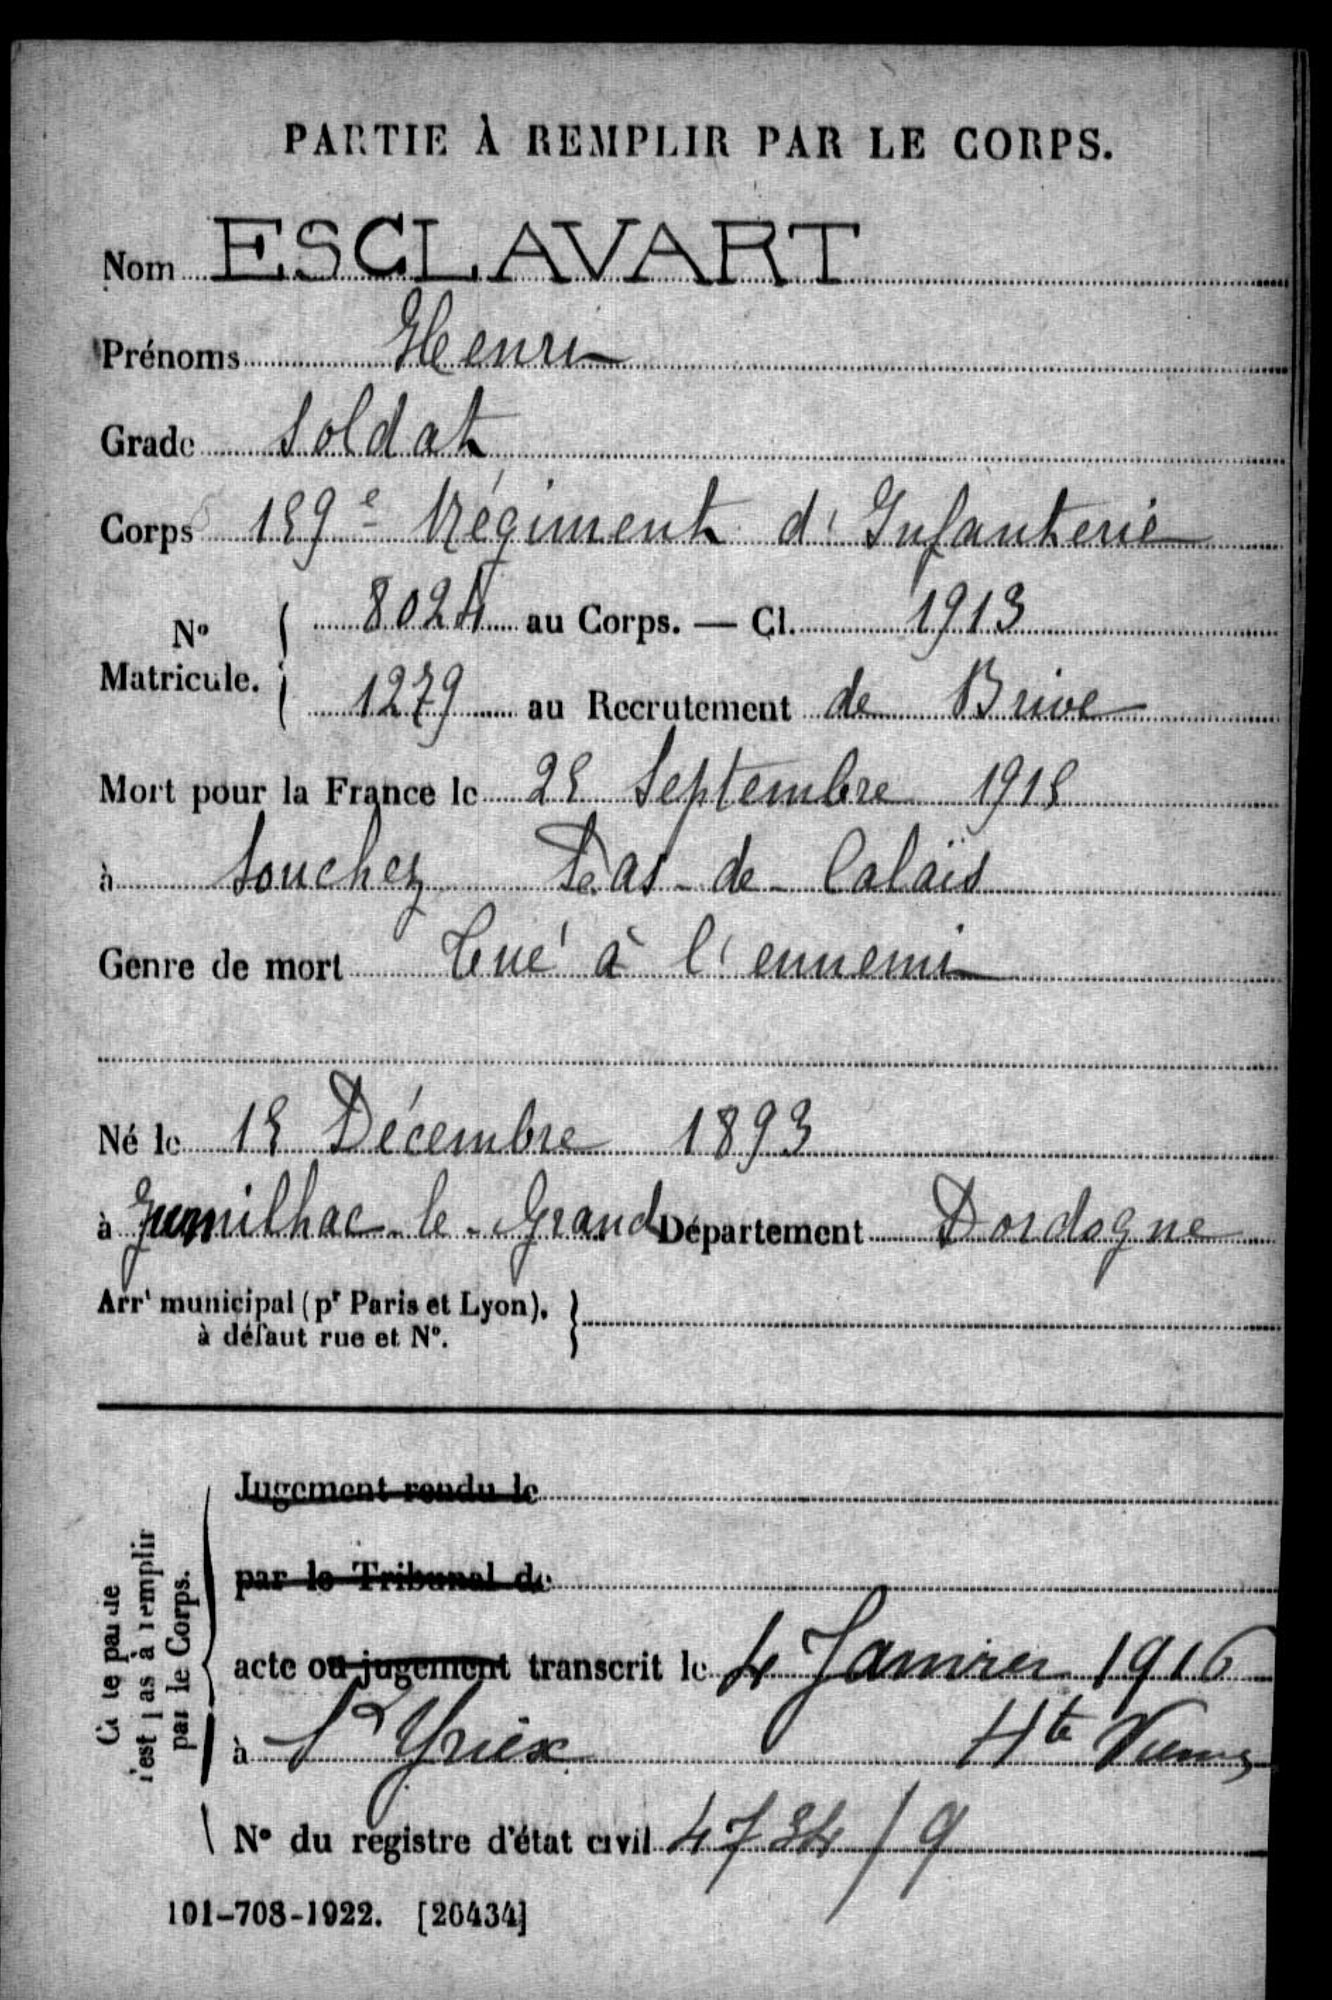 PARTIE À REMPLIR PAR LE CORPS.
Nom ESCLAVART
Prénoms Henri
Grade Soldat
Corps 159e Régiment d'Infanterie
No Matricule. { 8024 au Corps. — Cl. 1913
1279 au Recrutement de Brive
Mort pour la France le 25 Septembre 1915
à Souchez Pas-de-Calais
Genre de mort Tué à l'ennemi
Né le 15 Décembre 1893
à Jumilhac-le-Grand Département Dordogne
Arrt municipal (pr Paris et Lyon), }
à défaut rue et N°.
Cette partie
n'est pas à remplir
par le Corps.
Jugement rendu le
par le Tribunal de
acte ou jugement transcrit le 4 Janvier 1916
à St Yrieix Hte Vienne
N° du registre d'état civil 4734/9
101-708-1922. [26434]